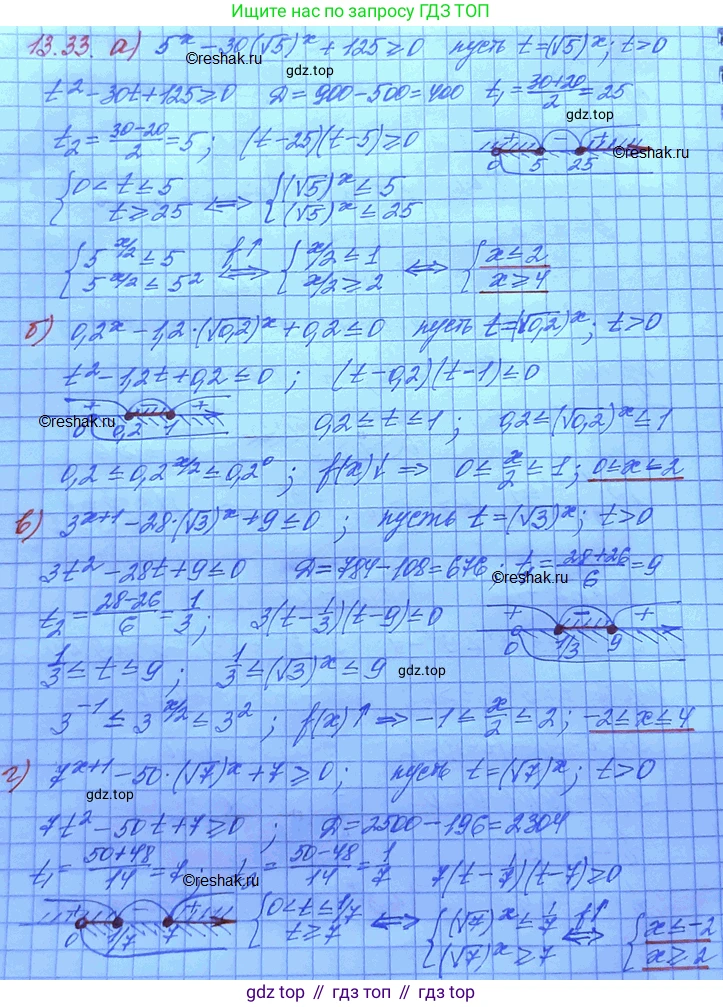 Ищите нас по запросу ГДЗ ТОП
13.33. а) 5^x − 30(√5)^x + 125 ⩾ 0 пусть t = (√5)^x; t > 0
©reshak.ru
gdz.top
t² − 30t + 125 ⩾ 0 Д = 900 − 500 = 400 t₁ = (30+20)/2 = 25
gdz.top
t₂ = (30−20)/2 = 5; (t − 25)(t − 5) ⩾ 0 + − + 0 5 25
©reshak.ru
{ 0 < t ≤ 5 ⟺ { (√5)^x ≤ 5
t ⩾ 25 (√5)^x ≤ 25
{ 5^(x/2) ≤ 5 f↑ ⟺ { x/2 ≤ 1 ⟺ { x ≤ 2
5^(x/2) ≤ 5² x/2 ⩾ 2 x ⩾ 4
б) 0,2^x − 1,2·(√0,2)^x + 0,2 ≤ 0 пусть t = (√0,2)^x; t > 0
t² − 1,2t + 0,2 ≤ 0; (t − 0,2)(t − 1) ≤ 0
+ − + 0 0,2 1 0,2 ≤ t ≤ 1; 0,2 ≤ (√0,2)^x ≤ 1
©reshak.ru
0,2 ≤ 0,2^(x/2) ≤ 0,2⁰; f(x)↓ ⟹ 0 ≤ x/2 ≤ 1; 0 ≤ x ≤ 2
в) 3^(x+1) − 28·(√3)^x + 9 ≤ 0; пусть t = (√3)^x; t > 0
3t² − 28t + 9 ≤ 0 Д = 784 − 108 = 676; t₁ = (28+26)/6 = 9
©reshak.ru
t₂ = (28−26)/6 = 1/3; 3(t − 1/3)(t − 9) ≤ 0 + − + 0 1/3 9
1/3 ≤ t ≤ 9; 1/3 ≤ (√3)^x ≤ 9
gdz.top
3^(−1) ≤ 3^(x/2) ≤ 3²; f(x)↑ ⟹ −1 ≤ x/2 ≤ 2; −2 ≤ x ≤ 4
г) 7^(x+1) − 50·(√7)^x + 7 ⩾ 0; пусть t = (√7)^x; t > 0
gdz.top
7t² − 50t + 7 ⩾ 0; Д = 2500 − 196 = 2304
t₁ = (50+48)/14 = 7; t₂ = (50−48)/14 = 1/7 7(t − 1/7)(t − 7) ⩾ 0
©reshak.ru
+ − + 0 1/7 7 { 0 < t ≤ 1/7 ⟺ { (√7)^x ≤ 1/7 f↑ ⟺ { x ≤ −2
t ⩾ 7 (√7)^x ⩾ 7 x ⩾ 2
gdz.top // гдз топ // gdz.top